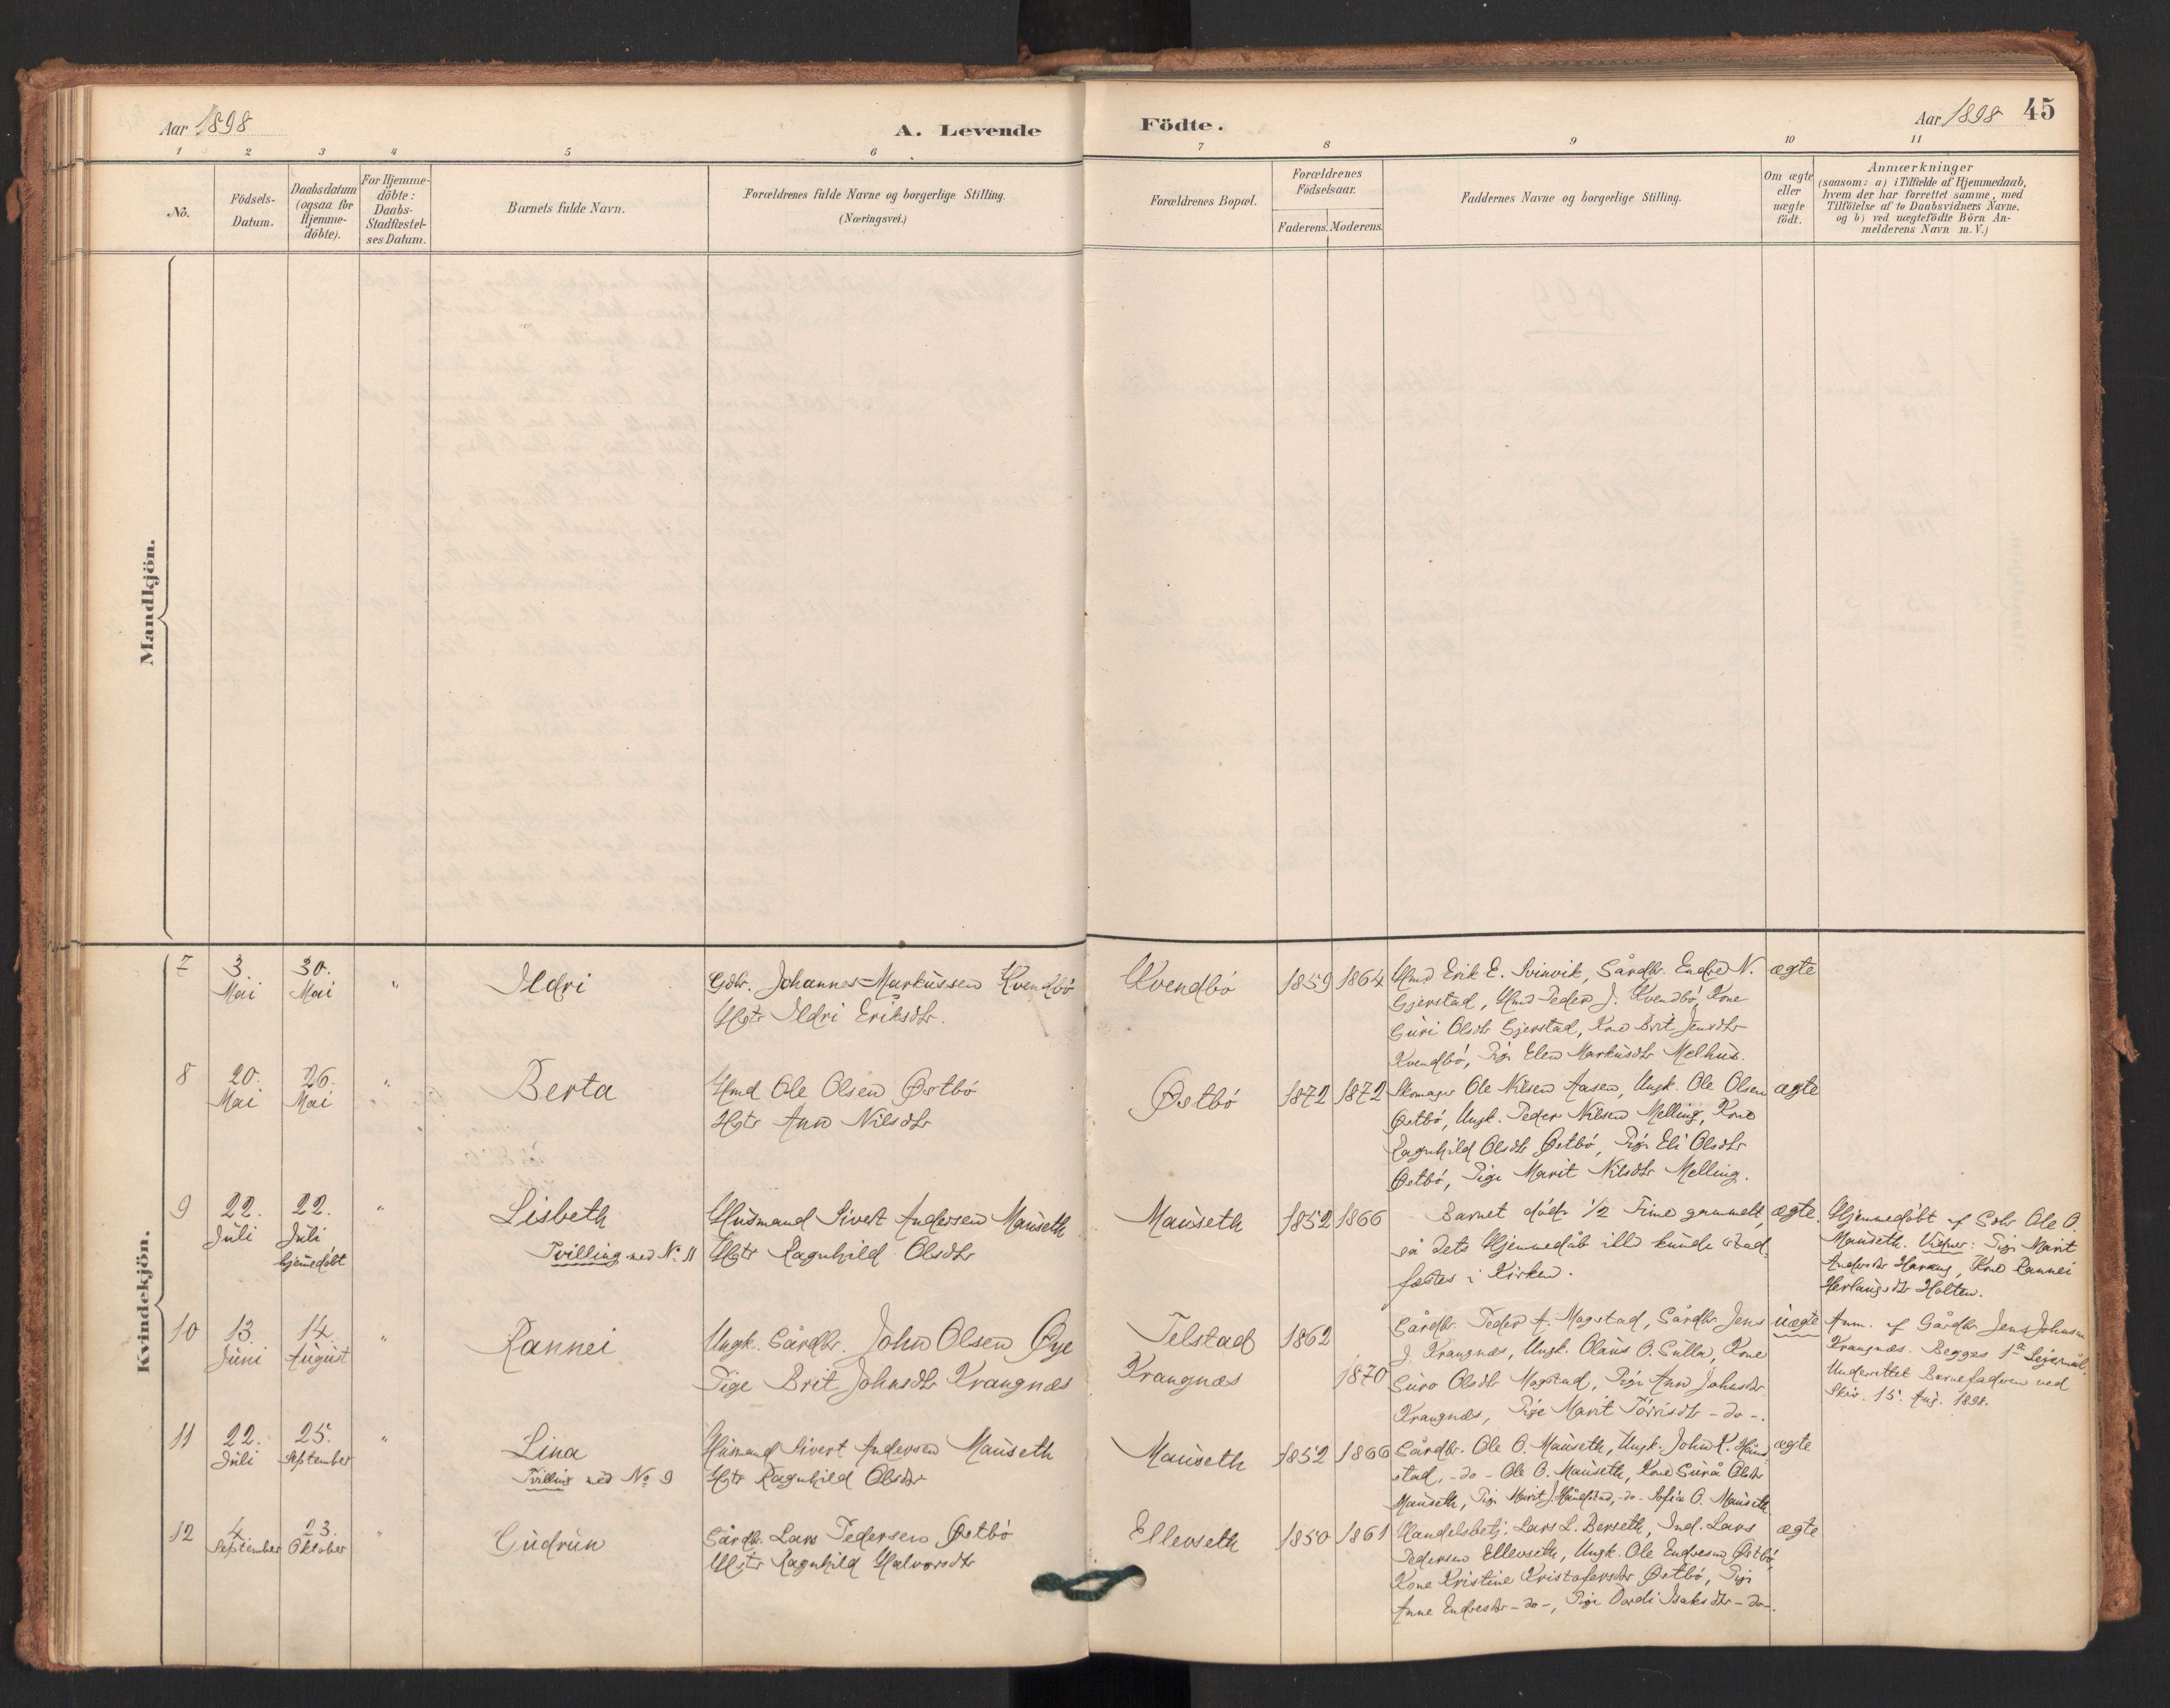 Aar 1898
A. Levende
Födte.
Aar 1898 45
1 2 3 4 5 6 7 8 9 10 11
No.
Födsels-
Datum.
Daabsdatum
(ogsaa for
Hjemme-
döbte).
For Hjemme-
döbte:
Daabs-
Stadfæstel-
ses Datum.
Barnets fulde Navn.
Forældrenes fulde Navne og borgerlige Stilling.
(Næringsvei.)
Forældrenes Bopæl.
Forældrenes
Födselsaar.
Faderens. Moderens.
Faddernes Navne og borgerlige Stilling.
Om ægte
eller
uægte
födt.
Anmærkninger
(saasom: a) i Tilfælde af Hjemmedaab,
hvem der har forrettet samme, med
Tilföielse af to Daabsvidners Navne.
og b) ved uægtefödte Börn An-
melderens Navn m. V.)
Mandkjön.
Kvindekjön.
7
3.
Mai
30.
Mai
"
Ildri
Gdbr. Johannes Markussen Kvendbö
Hstr Ildri Eriksdtr.
Kvendbö
1859 1864
Hmd Erik E. Svinvik, Gårdbr. Endre N.
Gjerstad, Hmd Peder J. Kvendbö, Kone
Guri Olsdtr Gjerstad, Kone Brit Jensdtr
Kvendbö, Pige Elen Markusdtr Melhus.
ægte
8
20.
Mai
26.
Mai
"
Berta
Hmd Ole Olsen Østbö
Hstr Ane Nilsdtr
Østbö
1872 1872
Skomager Ole Nilsen Aasen, Ungk. Ole Olsen
Østbö, Ungk. Peder Nilsen Melling, Kone
Ragnhild Olsdtr Østbö, Pige Eli Olsdtr
Østbö, Pige Marit Nilsdtr Melling.
ægte
9
22.
Juli
22.
Juli
hjemedöbt
"
Lisbeth
Tvilling med No. 11
Husmand Sivert Andersen Mauseth
Hstr Ragnhild Olsdtr
Mauseth
1852 1866
Barnet döde 1/2 Time gammelt,
så dets Hjemmedåb ikke kunde stad-
fæstes i Kirken.
ægte.
Hjemmedöbt af Gdbr Ole O.
Mauseth. Vidner: Pige Marit
Andersdtr Harang, Kone Rannei
Herlaugsdtr Holten.
10
13.
Juni
14.
August
"
Rannei
Ungk. Gårdbr. John Olsen Øye
Pige Brit Johnsdtr Krangnæs
Telstad
Krangnæs
1862
1870
Gårdbr. Peder A. Magstad, Gårdbr. Jens
J. Krangnæs, Ungk. Olaus O. Sulla, Kone
Guro Olsdtr Magstad, Pige Ane Johnsdtr
Krangnæs, Pige Marit Törrisdtr -do-.
uægte
Anm. af Gårdbr Jens Johnsen
Krangnæs. Begges 1ste Leiermål.
Underrettet Barnefaderen ved
Skriv. 15. Aug. 1898.
11
22.
Juli
25.
September
"
Lina
Tvilling med No 9
Husmand Sivert Andersen Mauseth
Hstr Ragnhild Olsdtr
Mauseth
1852 1866
Gårdbr. Ole O. Mauseth, Ungk. John K.
stad, -do- Ole O. Mauseth, Kone Gurå Olsdtr
Mauseth, Pige Marit J. -do- Sofie O. Mauseth
ægte
12
4.
September
23.
Oktober
"
Gudrun
Gårdbr. Lars Pedersen Østbö
Hstr Ragnhild Halvorsdtr
Ellevseth
1850 1861
Handelsbetj. Lars L. Berseth, Ind. Lars
Pedersen Ellevseth, Ungk. Ole Endresen Østbö,
Kone Kristine Kristofersdtr Østbö, Pige
Anne Endresdtr -do-, Pige Dordi Isaksdtr -do-.
ægte